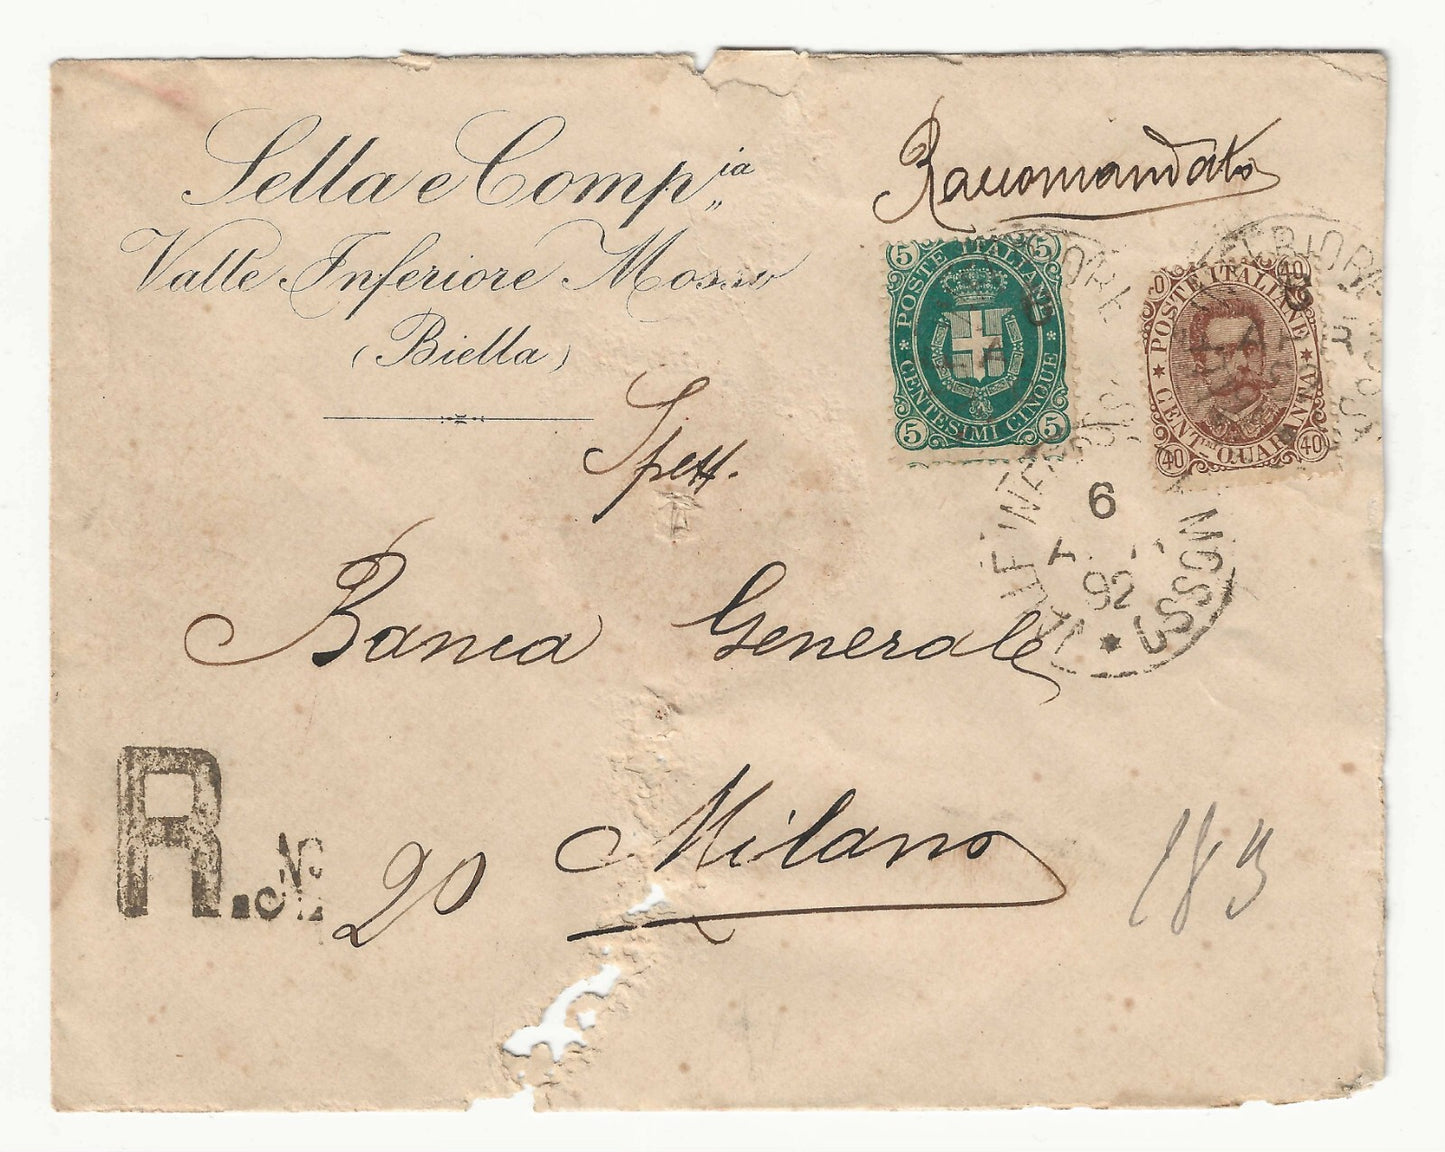 Sella e Comp.ia
Valle Inferiore Mosso
(Biella)
Raccomandata
POSTE ITALIANE
CENTESIMI CINQUE
5 5 5 5
POSTE ITALIANE
CENT.MI QUARANTA
40 40 40
Spett.
Banca Generale
Milano
VALLE INFERIORE MOSSO
6
92
R. No 20
183